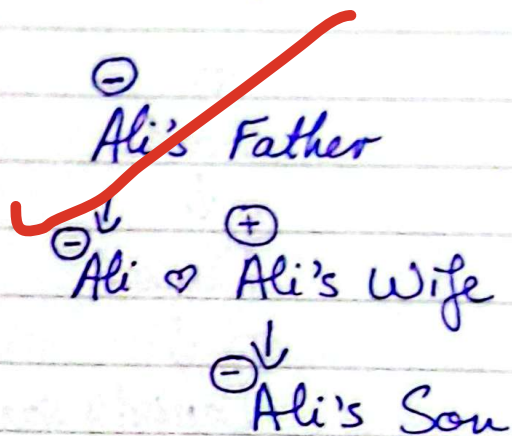 ⊖
Ali's Father
↓
⊖ ⊕
Ali ♡ Ali's Wife
↓
⊖
Ali's Son